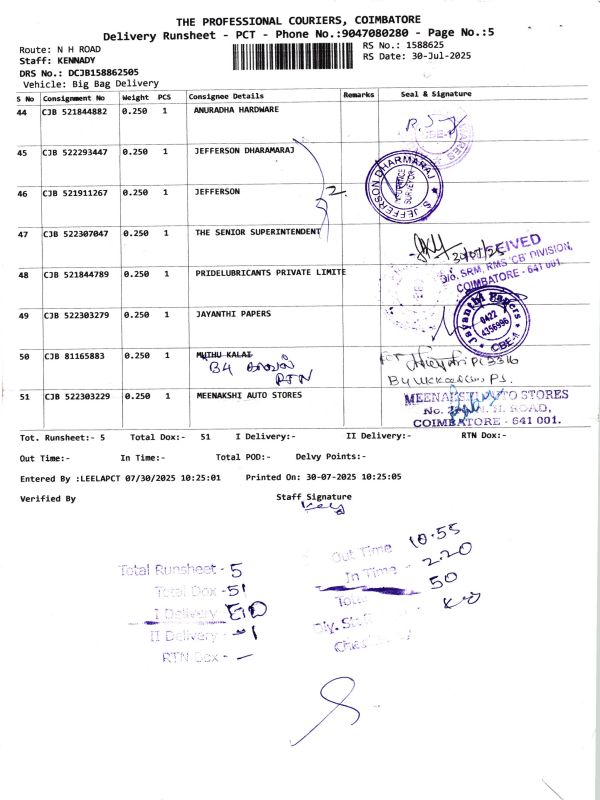 THE PROFESSIONAL COURIERS, COIMBATORE
Delivery Runsheet - PCT - Phone No.:9047080280 - Page No.:5
Route: N H ROAD
RS No.: 1588625
Staff: KENNADY
RS Date: 30-Jul-2025
DRS No.: DCJB158862505
Vehicle: Big Bag Delivery
S No Consignment No Weight PCS Consignee Details Remarks Seal & Signature
44 CJB 521844882 0.250 1 ANURADHA HARDWARE
CBE-1
45 CJB 522293447 0.250 1 JEFFERSON DHARAMARAJ
S. JEFFERSON DHARMARAJ
SURVEYOR
46 CJB 521911267 0.250 1 JEFFERSON
2
47 CJB 522307047 0.250 1 THE SENIOR SUPERINTENDENT
30/07/25
O/o. SRM, RMS 'CB' DIVISION,
COIMBATORE - 641 001.
48 CJB 521844789 0.250 1 PRIDELUBRICANTS PRIVATE LIMITE
49 CJB 522303279 0.250 1 JAYANTHI PAPERS
Jayanthi Papers
0422
4356996
CBE-1
50 CJB 81165883 0.250 1 MUTHU KALAI
B4 காவல்
RTN
51 CJB 522303229 0.250 1 MEENAKSHI AUTO STORES
MEENAKSHI AUTO STORES
N. H. ROAD,
COIMBATORE - 641 001.
Tot. Runsheet:- 5 Total Dox:- 51 I Delivery:- II Delivery:- RTN Dox:-
Out Time:- In Time:- Total POD:- Delvy Points:-
Entered By :LEELAPCT 07/30/2025 10:25:01 Printed On: 30-07-2025 10:25:05
Verified By Staff Signature
Total Runsheet - 5
Total Dox - 51
I Delivery
II Delivery - 1
RTN Dox - —
Out Time 10:55
In Time - 2.20
50